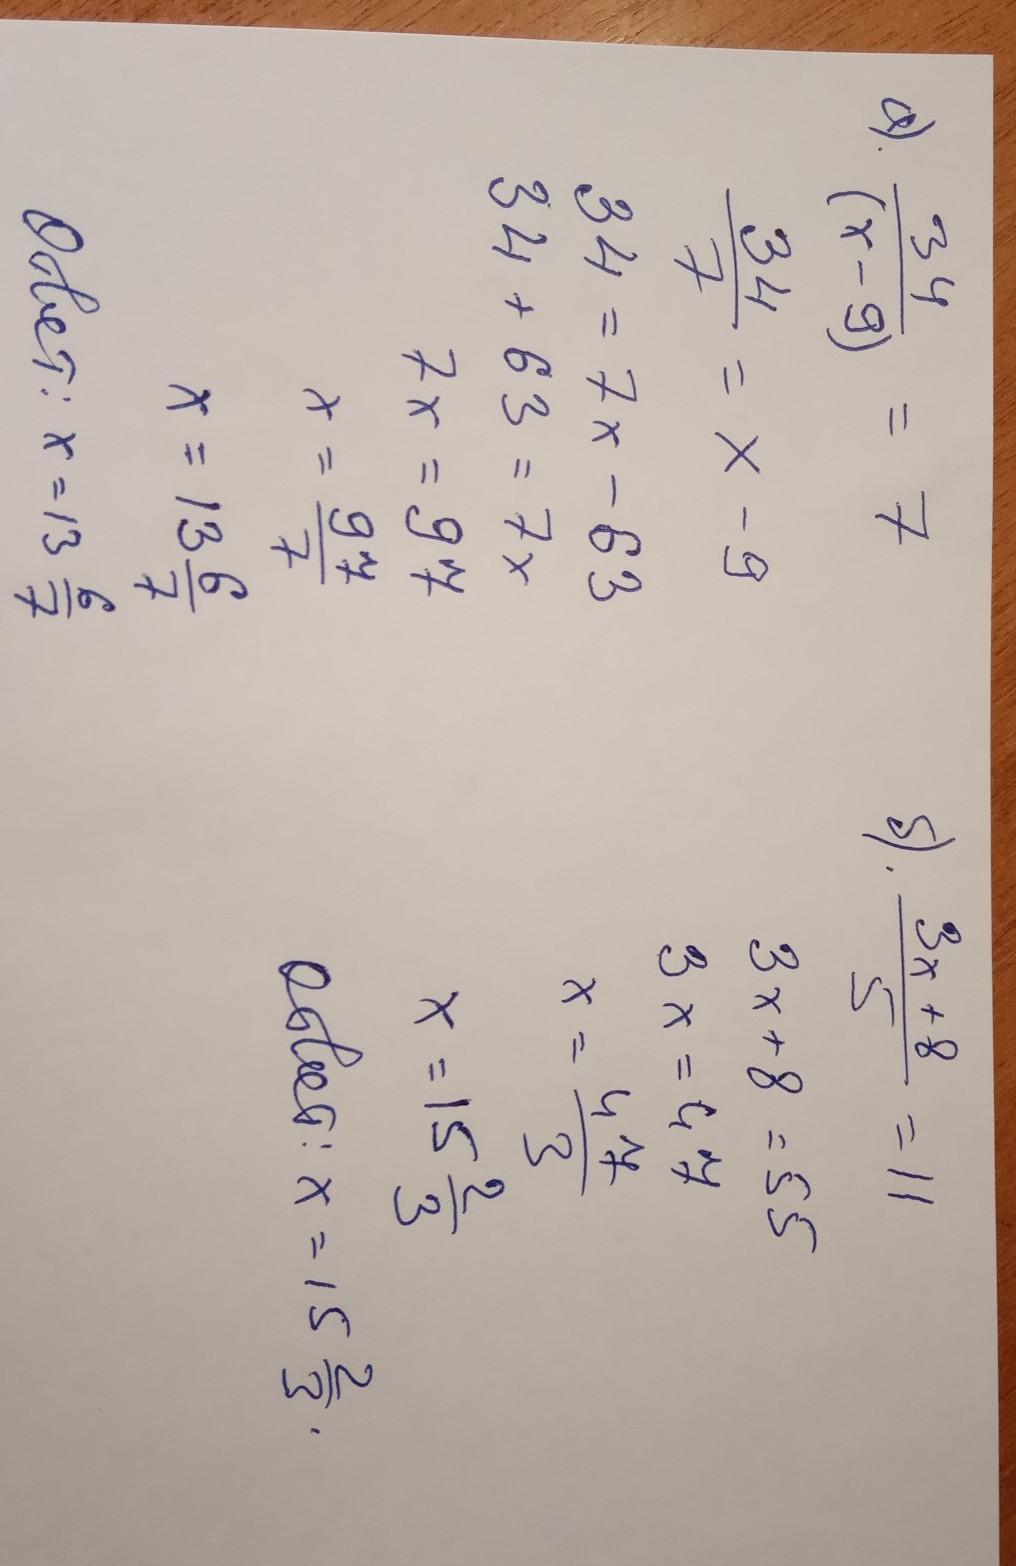 а). 34/(x-9) = 7
34/7 = x - 9
34 = 7x - 63
34 + 63 = 7x
7x = 97
x = 97/7
x = 13 6/7
Ответ: x = 13 6/7
б). (3x+8)/5 = 11
3x + 8 = 55
3x = 47
x = 47/3
x = 15 2/3
Ответ: x = 15 2/3.